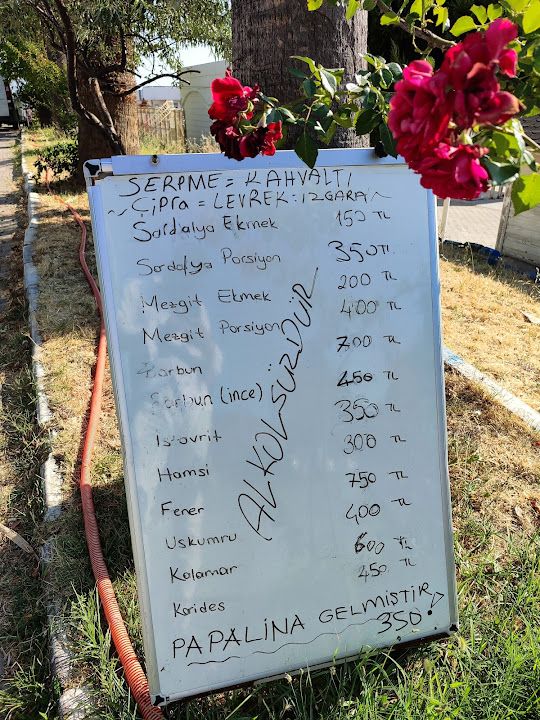 SERPME = KAHVALTI
~ÇİPRA = LEVREK = IZGARA~
Sardalya Ekmek 150 TL
Sardalya Porsiyon 350 TL
Mezgit Ekmek 200 TL
Mezgit Porsiyon 400 TL
Barbun 700 TL
Barbun (ince) 450 TL
İstavrit 350 TL
Hamsi 300 TL
Fener 750 TL
Uskumru 400 TL
Kalamar 600 TL
Karides 450 TL
ALKOLSÜZDÜR
PAPALİNA GELMİŞTİR
350!